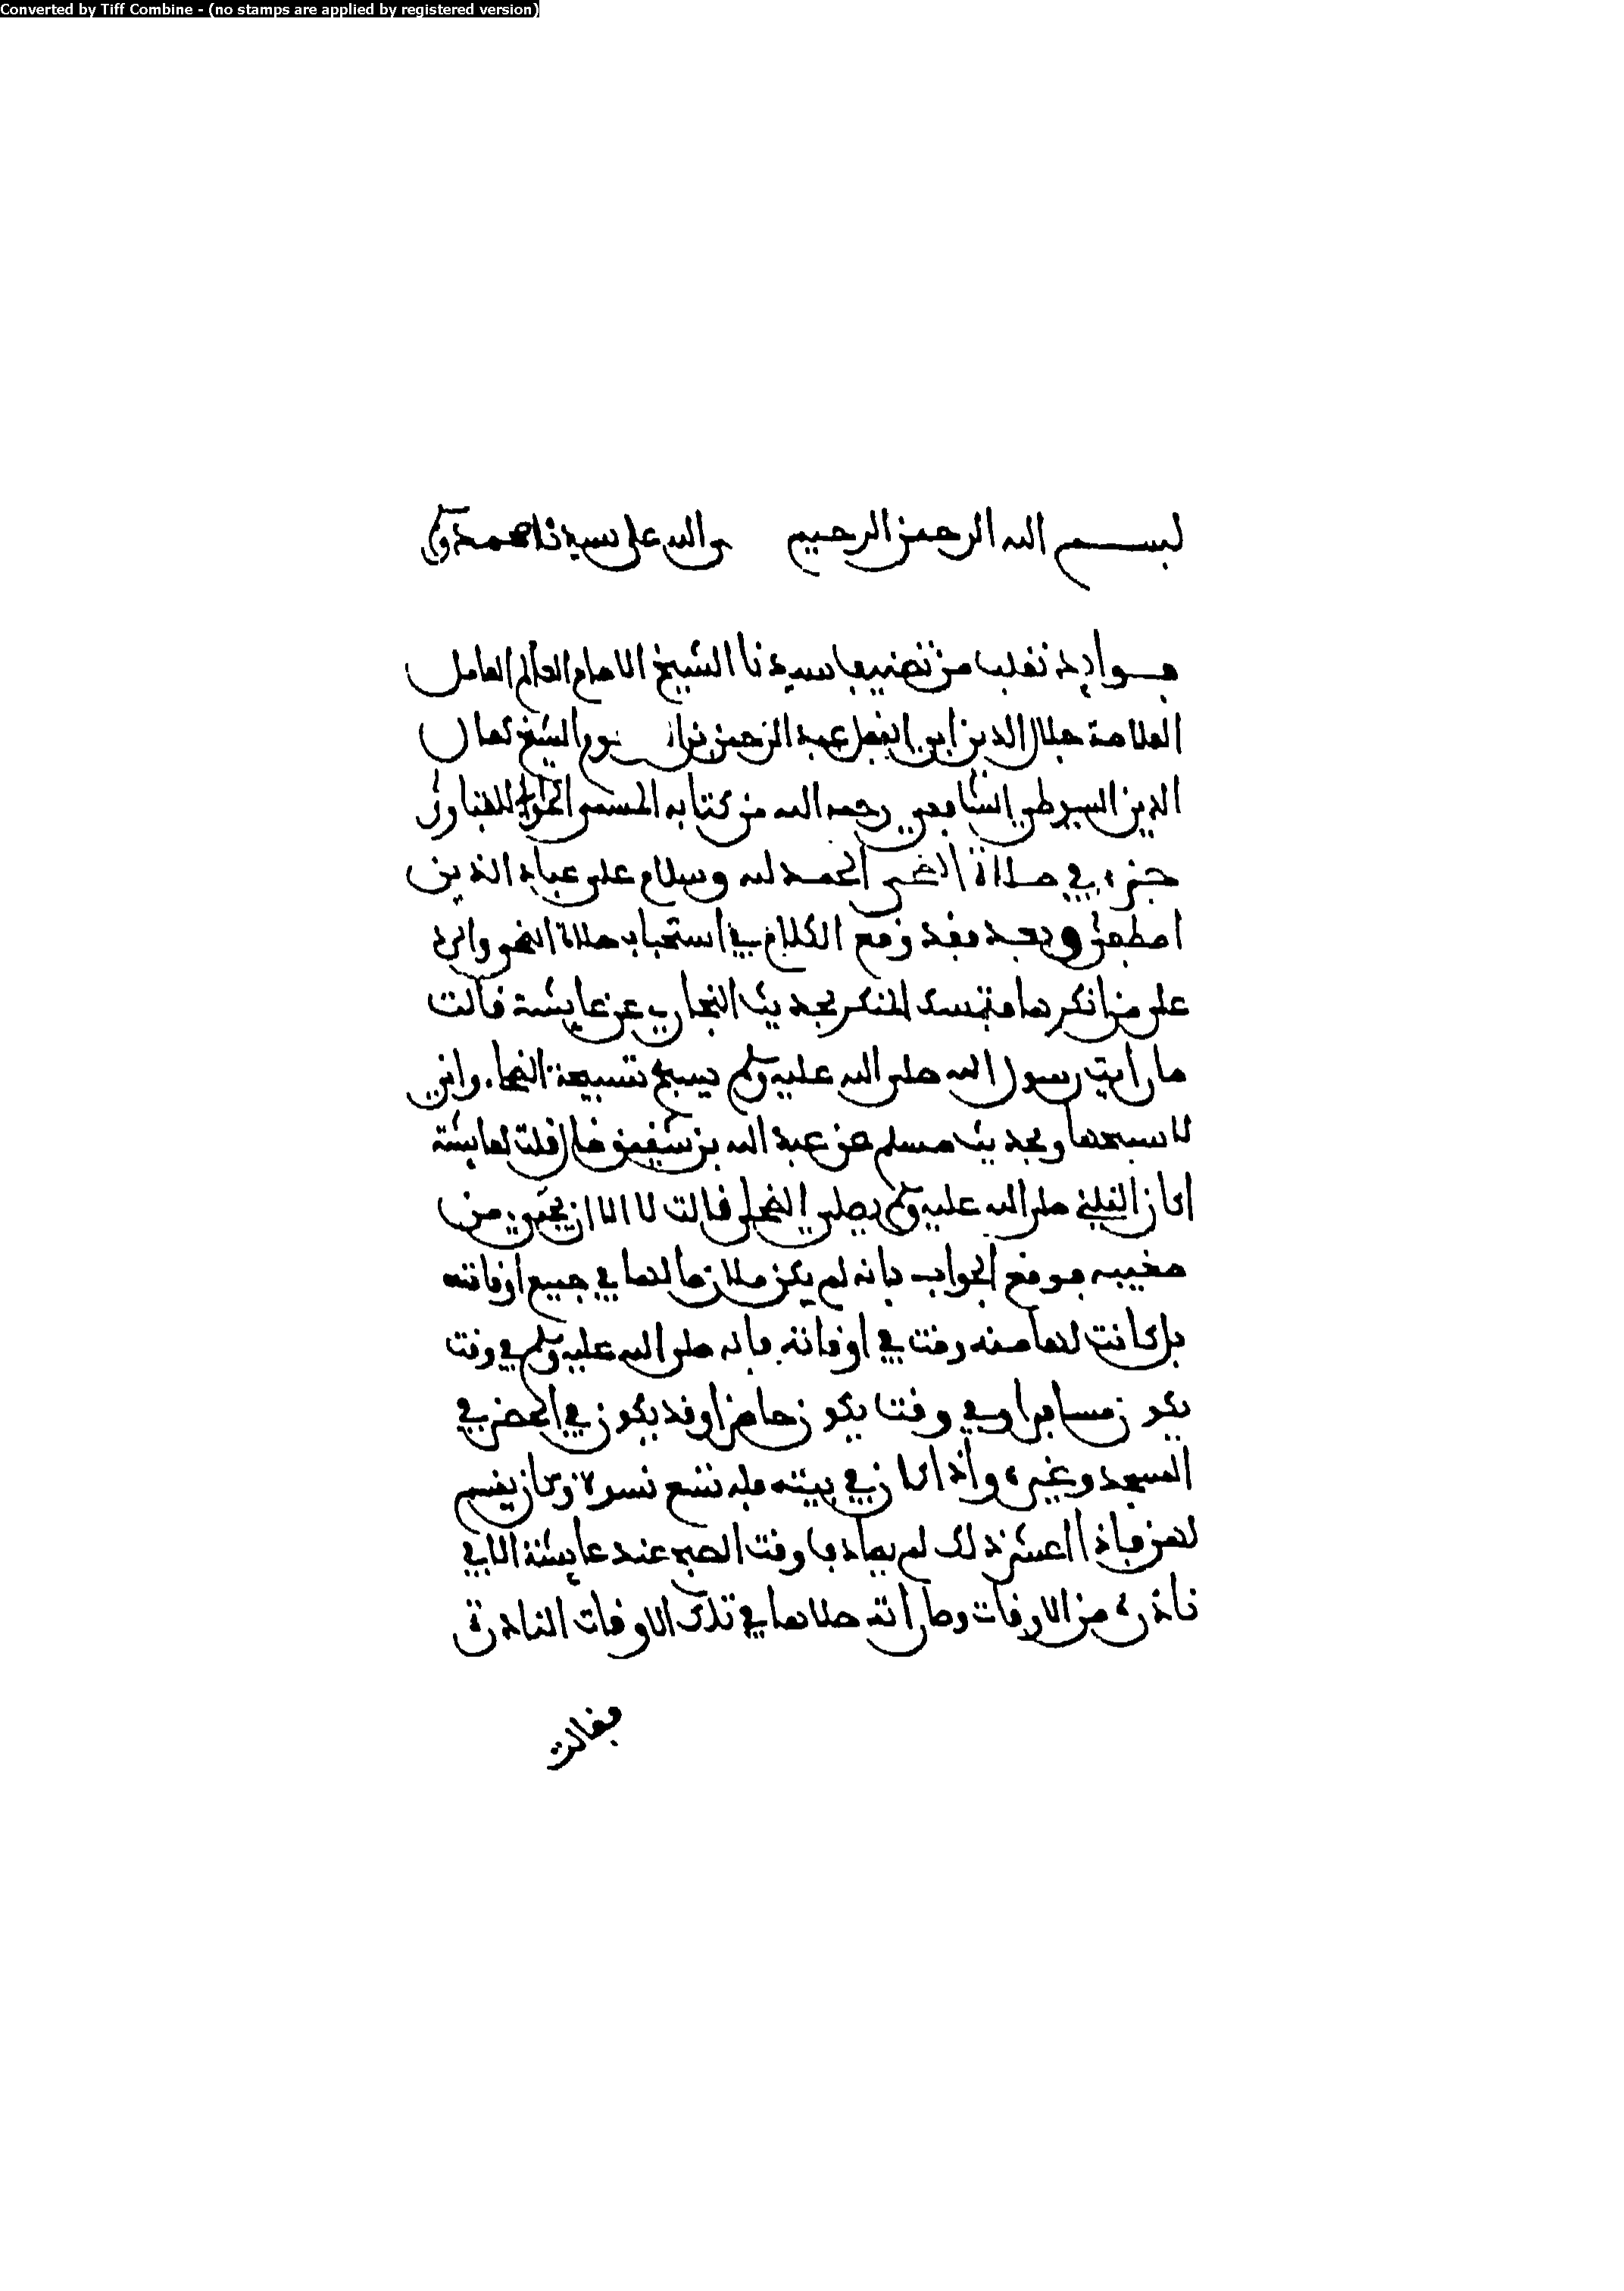 Converted by Tiff Combine - (no stamps are applied by registered version)
بسم الله الرحمن الرحيم صلى الله على سيدنا محمد
فوايد نقلت من تصنيف سيدنا الشيخ الامام العالم العامل
العلامة جلال الدين ابي الفضل عبد الرحمن بن الشيخ كمال
الدين السيوطي الشافعي رحمه الله من كتابه المسمى الحاوي للفتاوى
جزء في صلاة الضحى الحمد لله وسلام على عباده الذين
اصطفى وبعد فقد وقع الكلام في استحباب صلاة الضحى والرد
على من انكرها فتمسك المنكر بحديث البخاري عن عايشة قالت
ما رأيت رسول الله صلى الله عليه وسلم يسبح تسبيحة الضحا واني
لاسبحها وبحديث مسلم عن عبد الله بن شقيق قال قلت لعايشة
اكان النبي صلى الله عليه وسلم يصلي الضحى قالت لا الا ان يجيء من
مغيبه فوقع الجواب بانه لم يكن ملازما لها في جميع اوقاته
بل كانت لها منه وقت في اوقاته فانه صلى الله عليه وسلم في وقت
يكون مسافرا وفي وقت يكون حاضرا وقد يكون في الحضر في
المسجد وغيره واذا كان في بيته فله تسع نسوة وكان يقسم
لهن فاذا اعتبر ذلك لم يصادف وقت الضحى عند عايشة الا في
نادرة من الاوقات وما راته صلاها في تلك الاوقات النادرة
فقالت